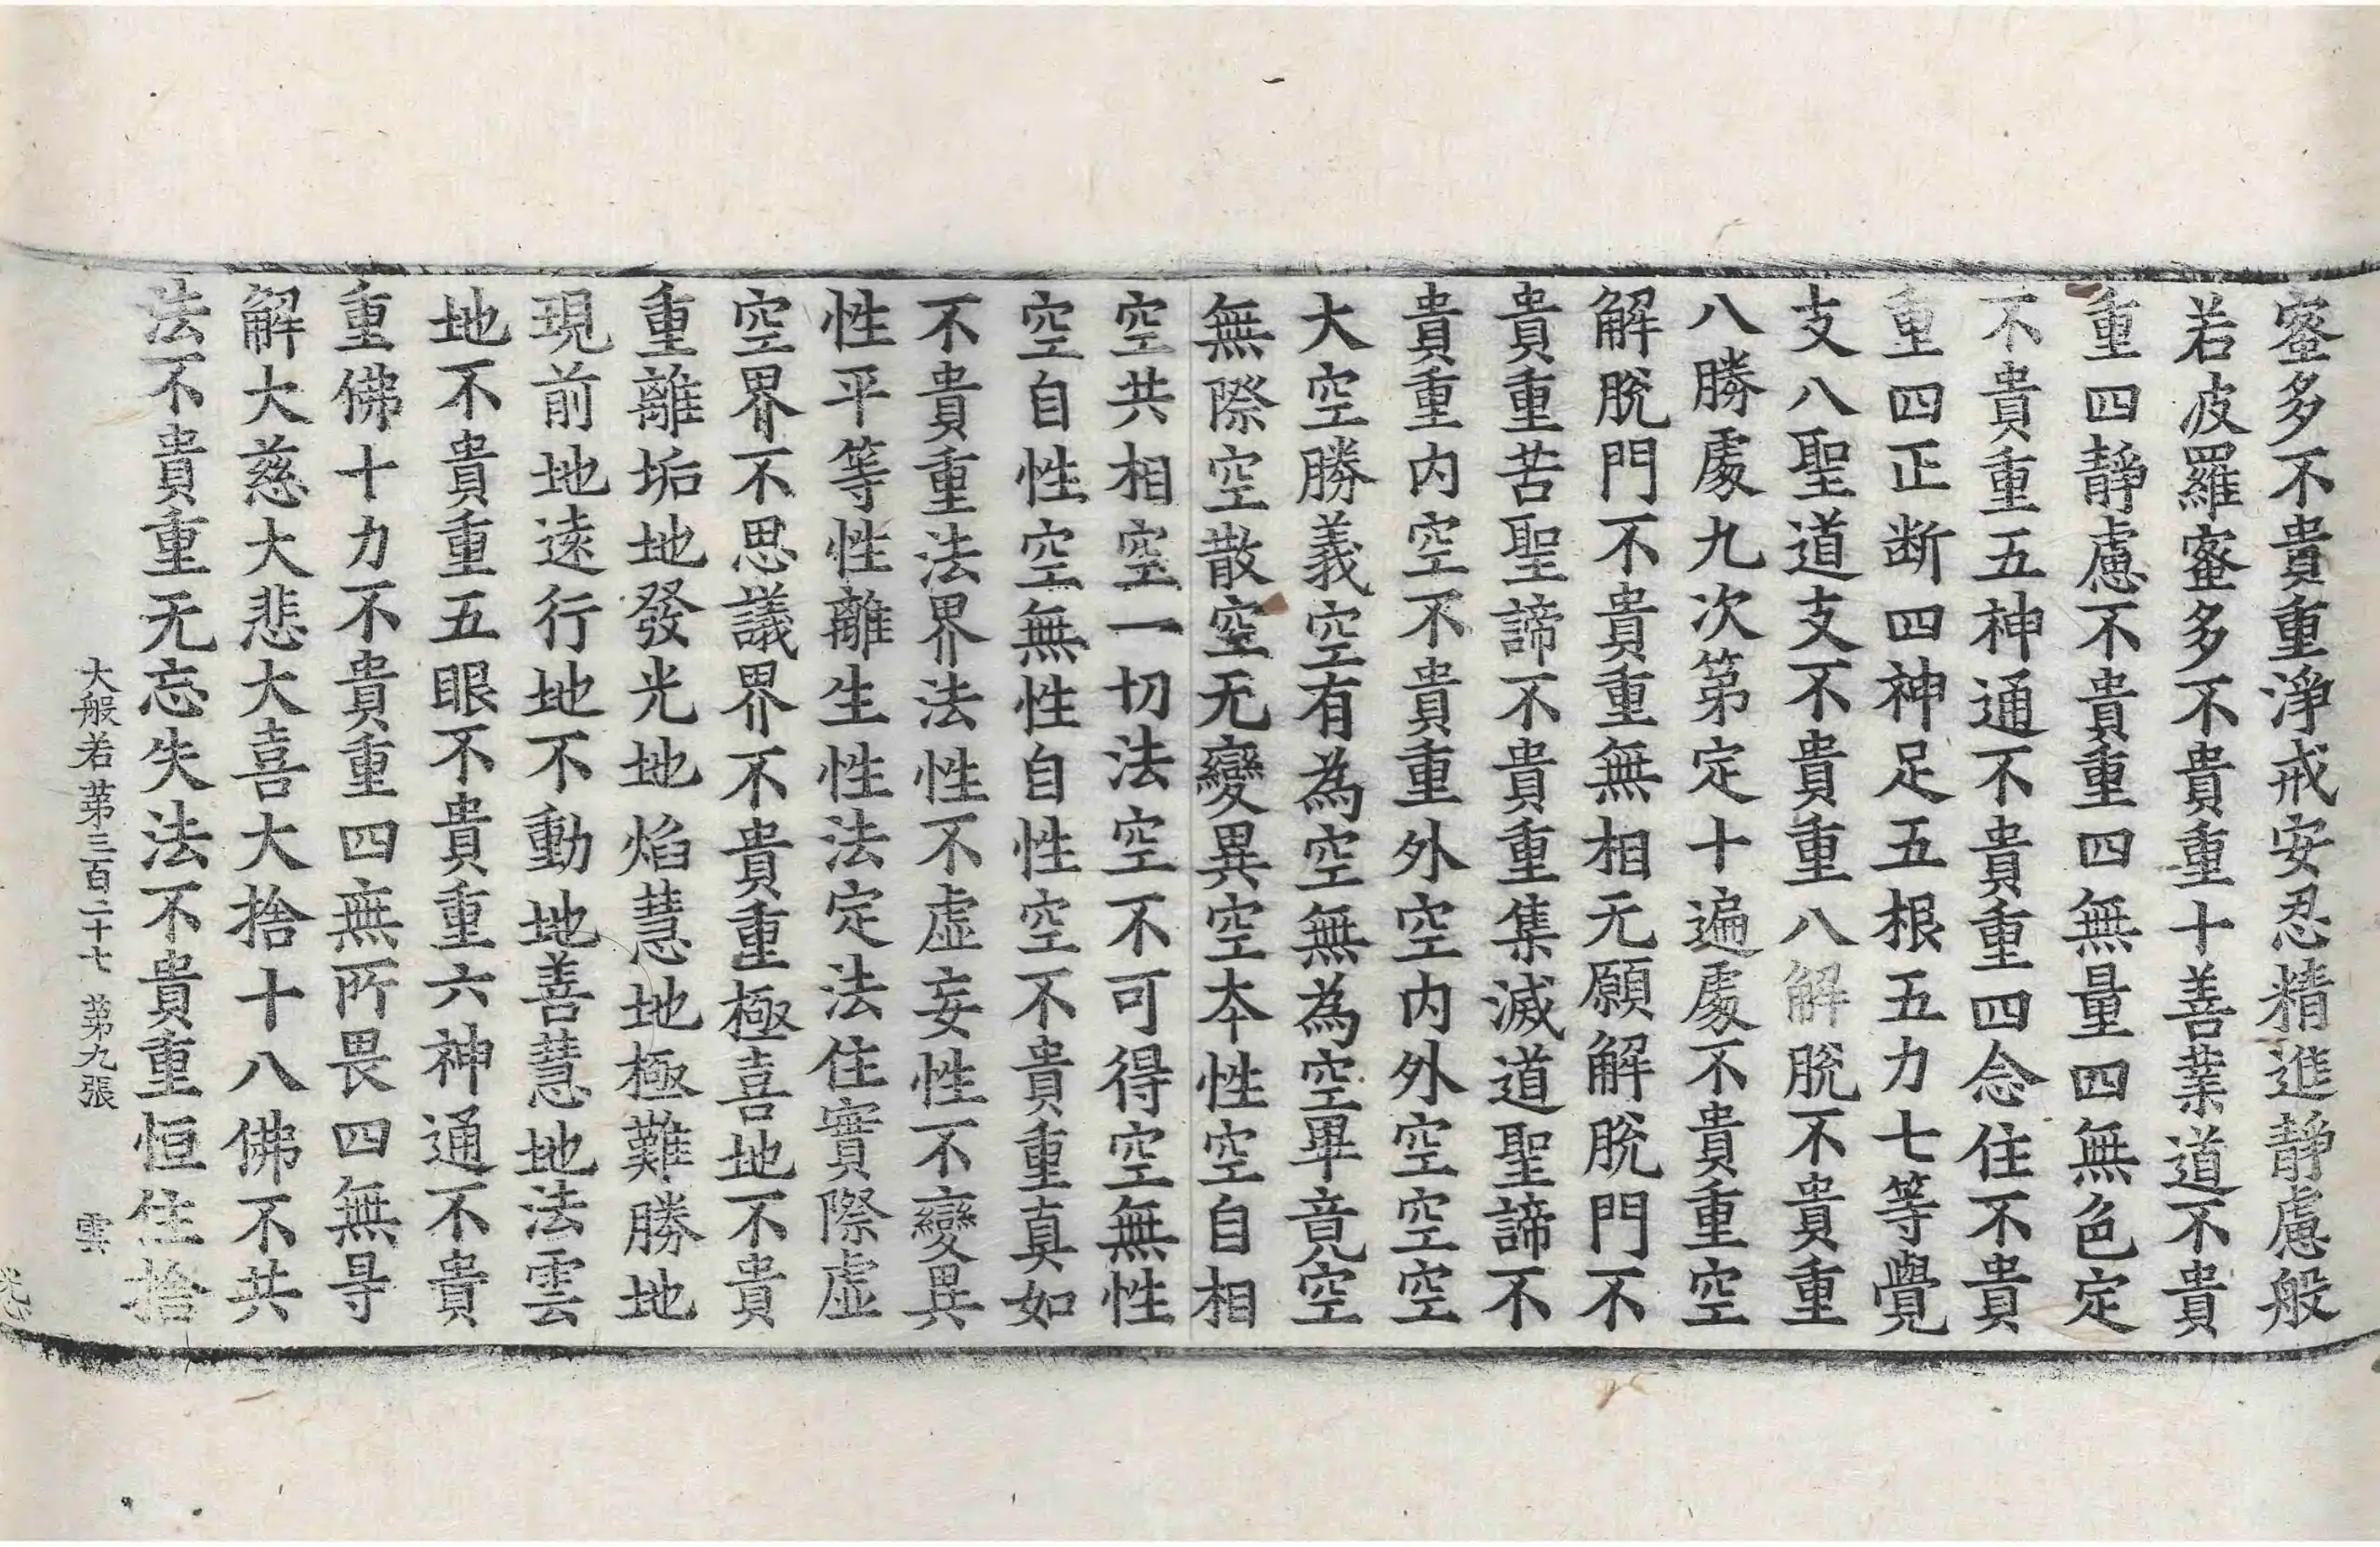 蜜多不貴重淨戒安忍精進靜慮般
若波羅蜜多不貴重十善業道不貴
重四靜慮不貴重四無量四無色定
不貴重五神通不貴重四念住不貴
重四正断四神足五根五力七等覺
支八聖道支不貴重八解脫不貴重
八勝處九次第定十遍處不貴重空
解脫門不貴重無相无願解脫門不
貴重苦聖諦不貴重集滅道聖諦不
貴重内空不貴重外空内外空空空
大空勝義空有為空無為空畢竟空
無際空散空无變異空本性空自相
空共相空一切法空不可得空無性
空自性空無性自性空不貴重真如
不貴重法界法性不虛妄性不變異
性平等性離生性法定法住實際虛
空界不思議界不貴重極喜地不貴
重離垢地發光地焰慧地極難勝地
現前地遠行地不動地善慧地法雲
地不貴重五眼不貴重六神通不貴
重佛十力不貴重四無所畏四無㝵
解大慈大悲大喜大捨十八佛不共
法不貴重无忘失法不貴重恒住捨
大般若第三百二十七 第九張 雲